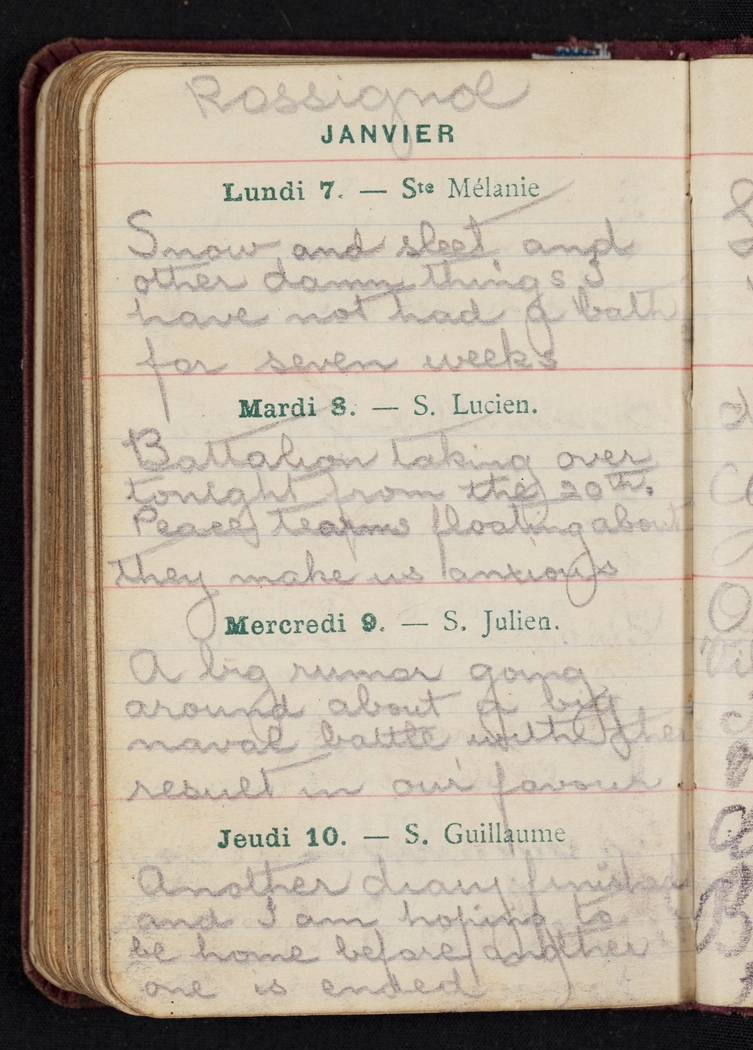 Rossignol
JANVIER
Lundi 7. — Ste Mélanie
Snow and sleet and
other damn things I
have not had a bath
for seven weeks
Mardi 8. — S. Lucien.
Battalion taking over
tonight from the 20th.
Peace tearms floating about
they make us anxious
Mercredi 9. — S. Julien.
A big rumor going
around about a big
naval battle with the
result in our favour
Jeudi 10. — S. Guillaume
Another diary finished
and I am hoping to
be home before another
one is ended